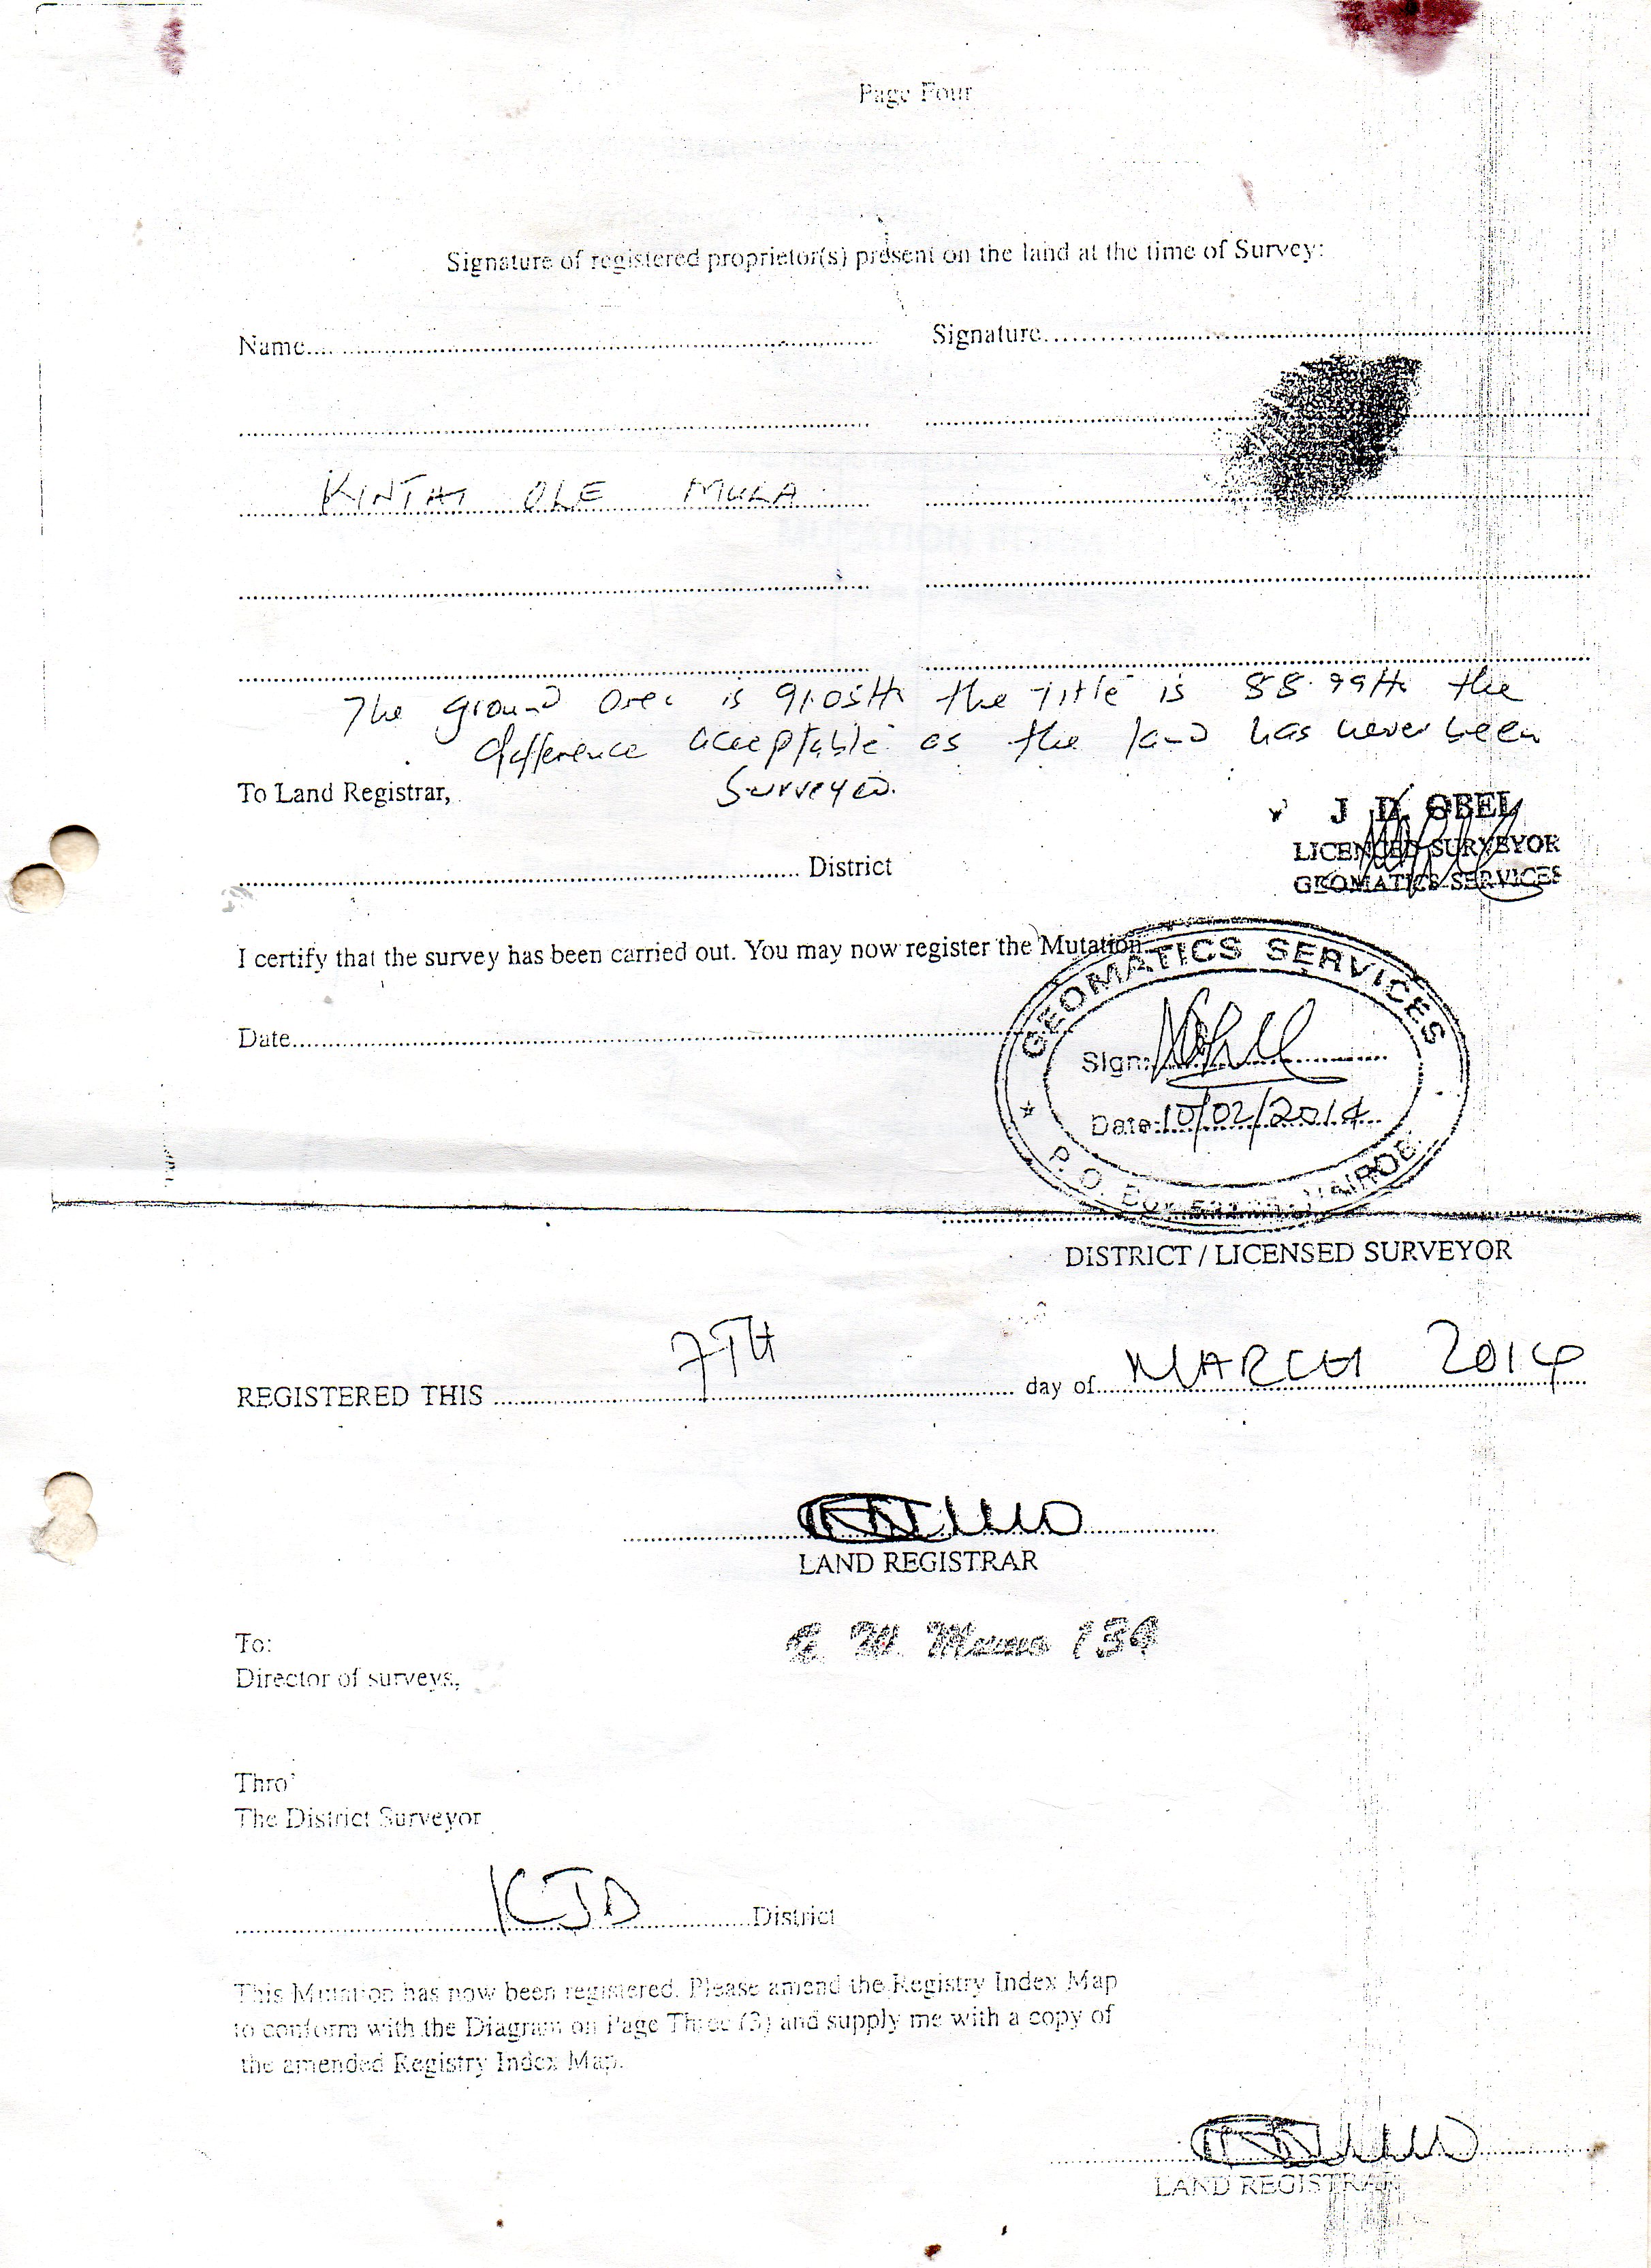 Page Four
Signature of registered proprietor(s) present on the land at the time of Survey:
Name.... Signature....
OLE
The ground area is 91.05Ha the Title is 88.99Ha the
difference acceptable as the land has never been
surveyed.
To Land Registrar,
J D. OBEL
LICENCED SURVEYOR
GEOMATICS SERVICES
District
I certify that the survey has been carried out. You may now register the Mutation
GEOMATICS SERVICES
Sign:
Date....
Date: 10/02/2014
P. O. Box
DISTRICT / LICENSED SURVEYOR
REGISTERED THIS 7TH day of MARCH 2014
LAND REGISTRAR
To:
Director of surveys,
Thro'
The District Surveyor
KJD District
This Mutation has now been registered. Please amend the Registry Index Map
to conform with the Diagram on Page Three (3) and supply me with a copy of
the amended Registry Index Map.
LAND REGISTRAR